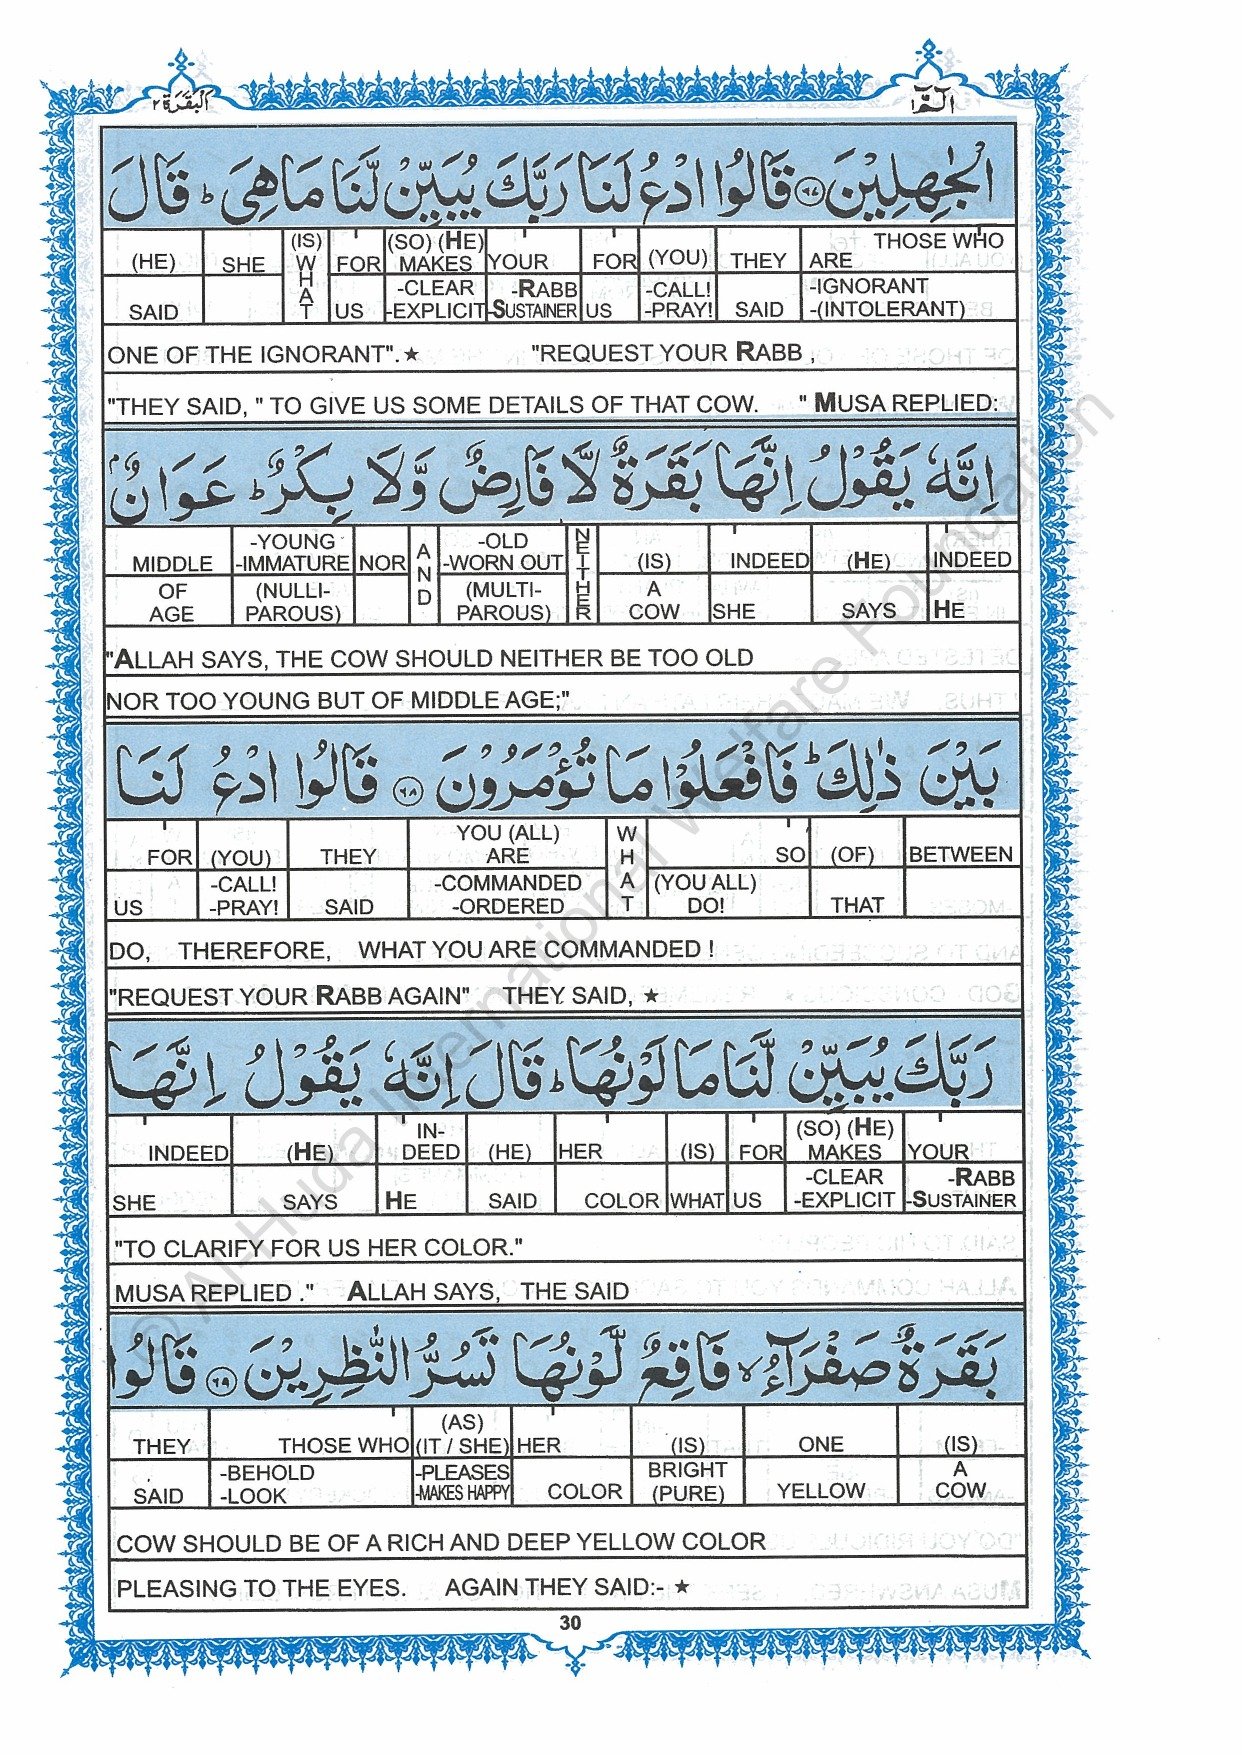 البقرة ٢
الٓمّٓ ١
الْجٰهِلِيْنَ ﴿٦٧﴾ قَالُوا ادْعُ لَنَا رَبَّكَ يُبَيِّنْ لَّنَا مَا هِيَ ؕ قَالَ
(HE) SHE (IS) WHAT FOR (SO) (HE) MAKES YOUR FOR (YOU) THEY THOSE WHO ARE
SAID US -CLEAR -EXPLICIT -RABB -SUSTAINER US -CALL! -PRAY! SAID -IGNORANT -(INTOLERANT)
ONE OF THE IGNORANT".★ "REQUEST YOUR RABB ,
"THEY SAID, " TO GIVE US SOME DETAILS OF THAT COW. " MUSA REPLIED:
اِنَّهٗ يَقُوْلُ اِنَّهَا بَقَرَةٌ لَّا فَارِضٌ وَّلَا بِكْرٌ ؕ عَوَانٌۢ
MIDDLE -YOUNG -IMMATURE NOR AND -OLD -WORN OUT NEITHER (IS) INDEED (HE) INDEED
OF AGE (NULLI-PAROUS) (MULTI-PAROUS) A COW SHE SAYS HE
"ALLAH SAYS, THE COW SHOULD NEITHER BE TOO OLD
NOR TOO YOUNG BUT OF MIDDLE AGE;"
بَيْنَ ذٰلِكَ ؕ فَافْعَلُوْا مَا تُؤْمَرُوْنَ ﴿٦٨﴾ قَالُوا ادْعُ لَنَا
FOR (YOU) THEY YOU (ALL) ARE WHAT SO (OF) BETWEEN
US -CALL! -PRAY! SAID -COMMANDED -ORDERED (YOU ALL) DO! THAT
DO, THEREFORE, WHAT YOU ARE COMMANDED !
"REQUEST YOUR RABB AGAIN" THEY SAID, ★
رَبَّكَ يُبَيِّنْ لَّنَا مَا لَوْنُهَا ؕ قَالَ اِنَّهٗ يَقُوْلُ اِنَّهَا
INDEED (HE) IN-DEED (HE) HER (IS) FOR (SO) (HE) MAKES YOUR
SHE SAYS HE SAID COLOR WHAT US -CLEAR -EXPLICIT -RABB -SUSTAINER
"TO CLARIFY FOR US HER COLOR."
MUSA REPLIED ." ALLAH SAYS, THE SAID
بَقَرَةٌ صَفْرَآءُ ۙ فَاقِعٌ لَّوْنُهَا تَسُرُّ النّٰظِرِيْنَ ﴿٦٩﴾ قَالُوا
THEY THOSE WHO (AS) (IT / SHE) HER (IS) ONE (IS)
SAID -BEHOLD -LOOK -PLEASES -MAKES HAPPY COLOR BRIGHT (PURE) YELLOW A COW
COW SHOULD BE OF A RICH AND DEEP YELLOW COLOR
PLEASING TO THE EYES. AGAIN THEY SAID:- ★
30
© Al-Huda International Welfare Foundation